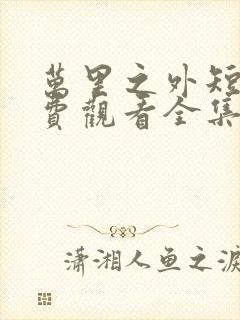 萬里之外短
費觀看全集
瀟湘人鱼之淚